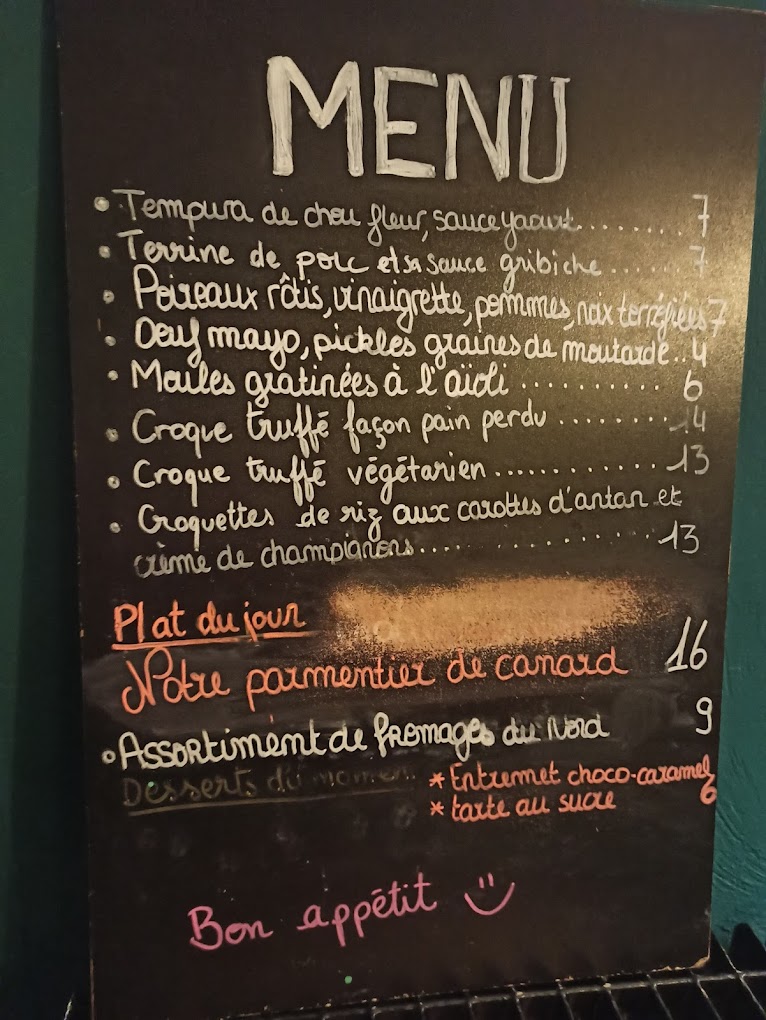 MENU
• Tempura de chou fleur, sauce yaourt........ 7
• Terrine de porc et sa sauce gribiche...... 7
• Poireaux rôtis, vinaigrette, pommes, noix torréfiées 7
• Oeuf mayo, pickles graines de moutarde.. 4
• Moules gratinées à l'aïoli .......... 6
• Croque truffé façon pain perdu ........ 14
• Croque truffé végétarien............ 13
• Croquettes de riz aux carottes d'antan et
crème de champignons.................. 13
Plat du jour
Notre parmentier de canard 16
• Assortiment de fromages du Nord 9
Desserts du moment * Entremet choco-caramel
* tarte au sucre 6
Bon appétit